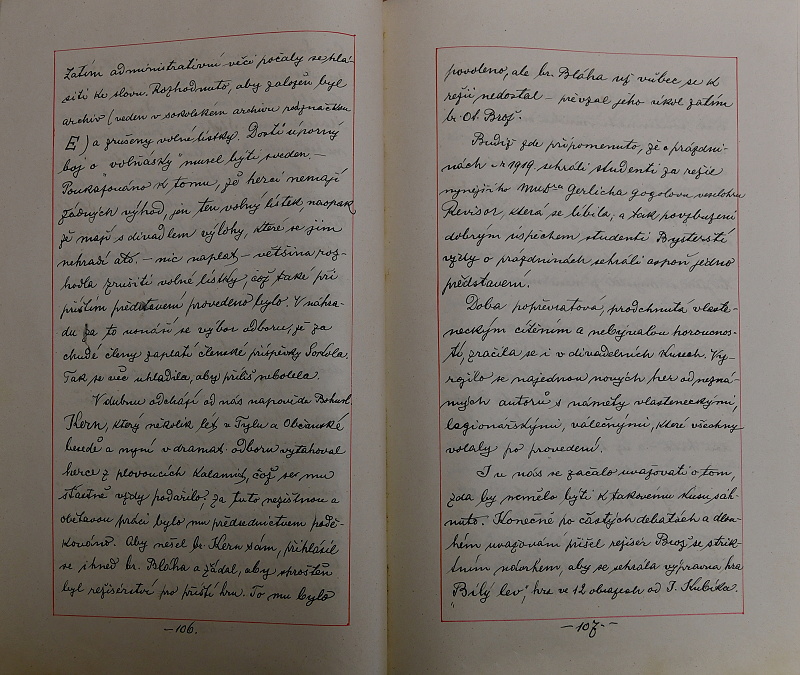 Zatím administrativní věci počaly se hlá-
siti ke slovu. Rozhodnuto, aby založen byl
archiv (veden v sokolském archivu pod značkou
E) a zrušeny volné lístky. Dosti úporný
boj o "volňásky" musel býti sveden. —
Poukazováno k tomu, že herci nemají
žádných výhod, jen ten volný lístek, naopak
že mají s divadlem výlohy, které se jim
nehradí atd. — nic naplat, — většina roz-
hodla zrušiti volné lístky, což také při
příštím představení provedeno bylo. V náhra-
du za to usnáší se výbor odboru, že za
chudé členy zaplatí členské příspěvky Sokola.
Tak se věc uhladila, aby příliš nebolela.
V dubnu odchází od nás napověda Bohusl.
Kern, který několik let v Tylu a Občanské
besedě a nyní v dramat. odboru vytahoval
herce z plovoucích kalamit, což se mu
šťastně vždy podařilo; za tuto nezištnou a
obětavou práci bylo mu předsednictvem podě-
kováno. Aby nešel br. Kern sám, přihlásil
se ihned br. Bláha a žádal, aby sproštěn
byl režisérství pro příští hru. To mu bylo
— 106. —
povoleno, ale br. Bláha už vůbec se k
režii nedostal — převzal jeho úkol zatím
br. Ot. Brož.
Budiž zde připomenuto, že o prázdni-
nách r. 1919 sehráli studenti za režie
nynějšího Mudra Gerlicha gogolovu veselohru
Revisor, která se líbila, a tak povzbuzeni
dobrým úspěchem studenti Bysterští
vždy o prázdninách sehráli aspoň jedno
představení.
Doba popřevratová, prodchnutá vlaste-
neckým cítěním a nebývalou horoucnos-
tí, zračila se i v divadelních kusech. Vy-
rojilo se najednou nových her od nezná-
mých autorů s náměty vlasteneckými,
legionářskými, válečnými, které všechny
volaly po provedení.
I u nás se začalo uvažovati o tom,
zda by nemělo býti k takovému kusu sáh-
nuto. Konečně po častých debatách a dlou-
hém uvažování přišel režisér Brož se strik-
tním návrhem, aby se sehrála výpravná hra
"Bílý lev", hra ve 12 obrazech od J. Kubíka.
— 107. —